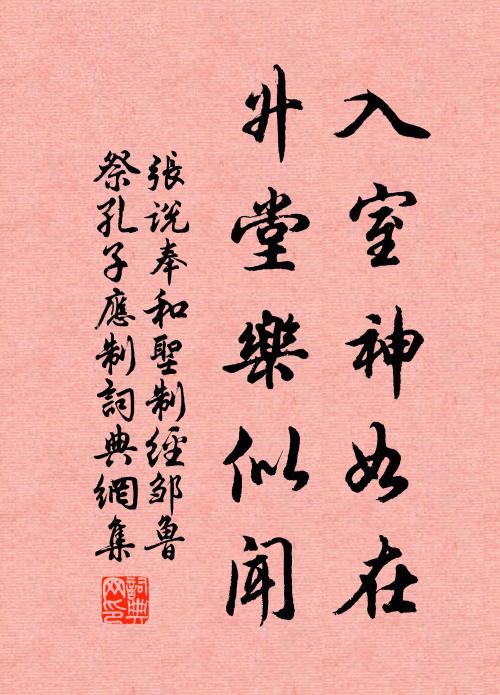 入室神如在
升堂樂似聞
張说奉和聖制經邹魯
祭孔子應制詞典網集
詞典网印